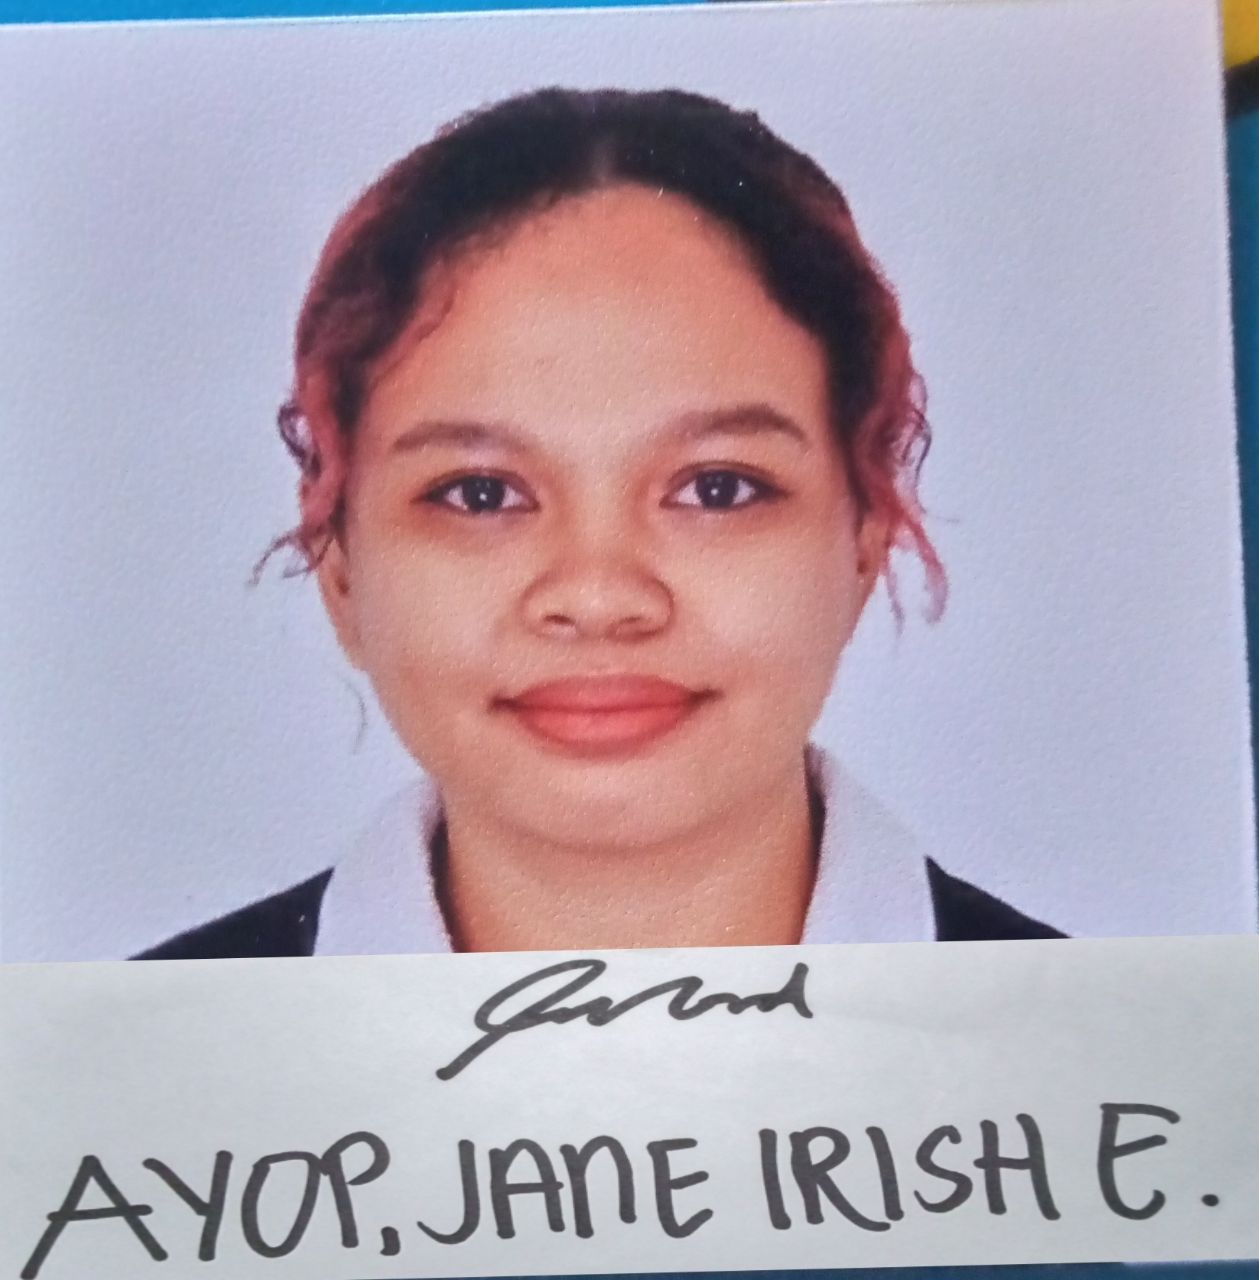 AYOP, JANE IRISH E.